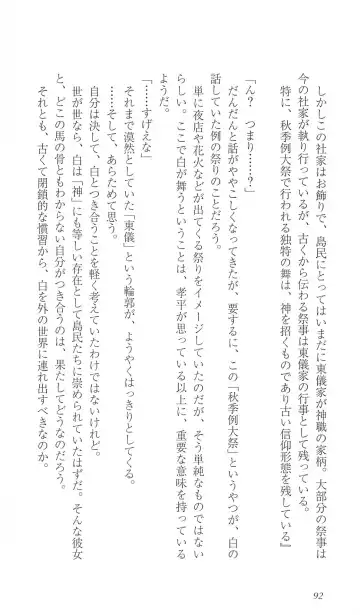 しかしこの社家はお飾りで、島民にとってはいまだに東儀家が神職の家柄。大部分の祭事は
今の社家が執り行っているが、古くから伝わる祭事は東儀家の行事として残っている。
特に、秋季例大祭で行われる独特の舞は、神を招くものであり古い信仰形態を残している』
「ん？　つまり……？」
だんだんと話がややこしくなってきたが、要するに、この「秋季例大祭」というやつが、白の
話していた例の祭りのことだろう。
単に夜店や花火などが出てくる祭りをイメージしていたのだが、そう単純なものではない
らしい。ここで白が舞うということは、孝平が思っている以上に、重要な意味を持っている
ようだ。
「……すげえな」
それまで漠然としていた「東儀」という輪郭が、ようやくはっきりとしてくる。
……そして、あらためて思う。
自分は決して、白とつき合うことを軽く考えていたわけではないけれど。
世が世なら、白は「神」にも等しい存在として島民に崇められていたはずだ。そんな彼女
と、どこの馬の骨ともわからない自分がつき合うのは、果たしてどうなのだろう。
それとも、古くて閉鎖的な慣習から、白を外の世界に連れ出すべきなのか。
92